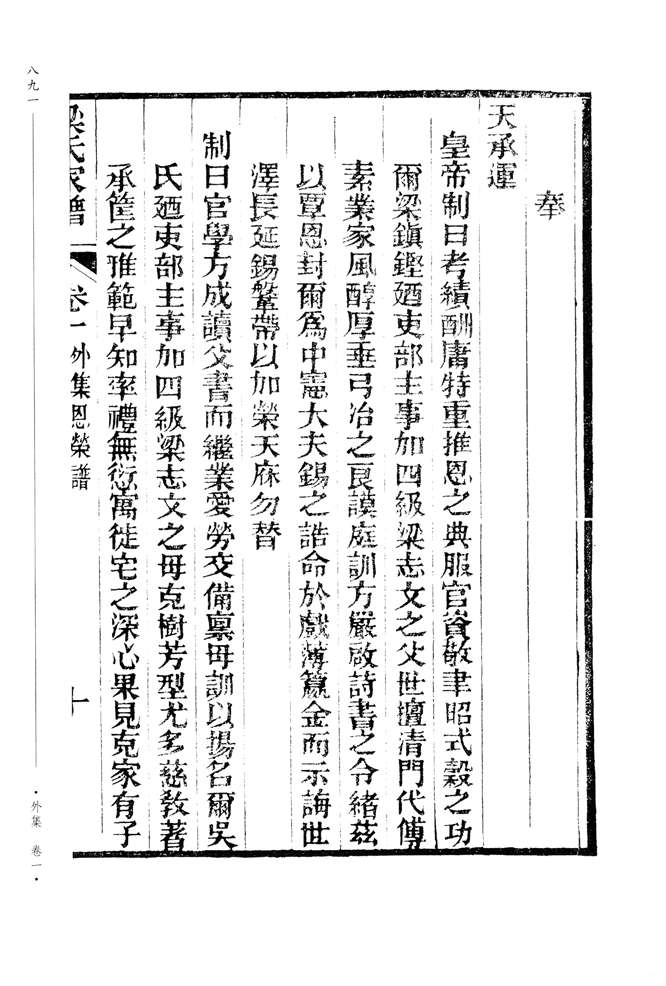 奉
天承運
皇帝制曰考績酬庸特重推恩之典服官資敬聿昭式穀之功
爾梁鎮鏗廼吏部主事加四級梁志文之父世擅清門代傳
素業家風醇厚垂弓冶之良謨庭訓方嚴啟詩書之令緒茲
以覃恩封爾爲中憲大夫錫之誥命於戲薄籯金而示誨世
澤長延錫鞶帶以加榮天庥勿替
制曰官學方成讀父書而繼業愛勞交備稟母訓以揚名爾吳
氏廼吏部主事加四級梁志文之母克樹芳型尤多慈敎著
承筐之雅範早知率禮無愆寓徙宅之深心果見克家有子
梁氏家譜
卷一外集恩榮譜
十
八九一
·外集 卷一·